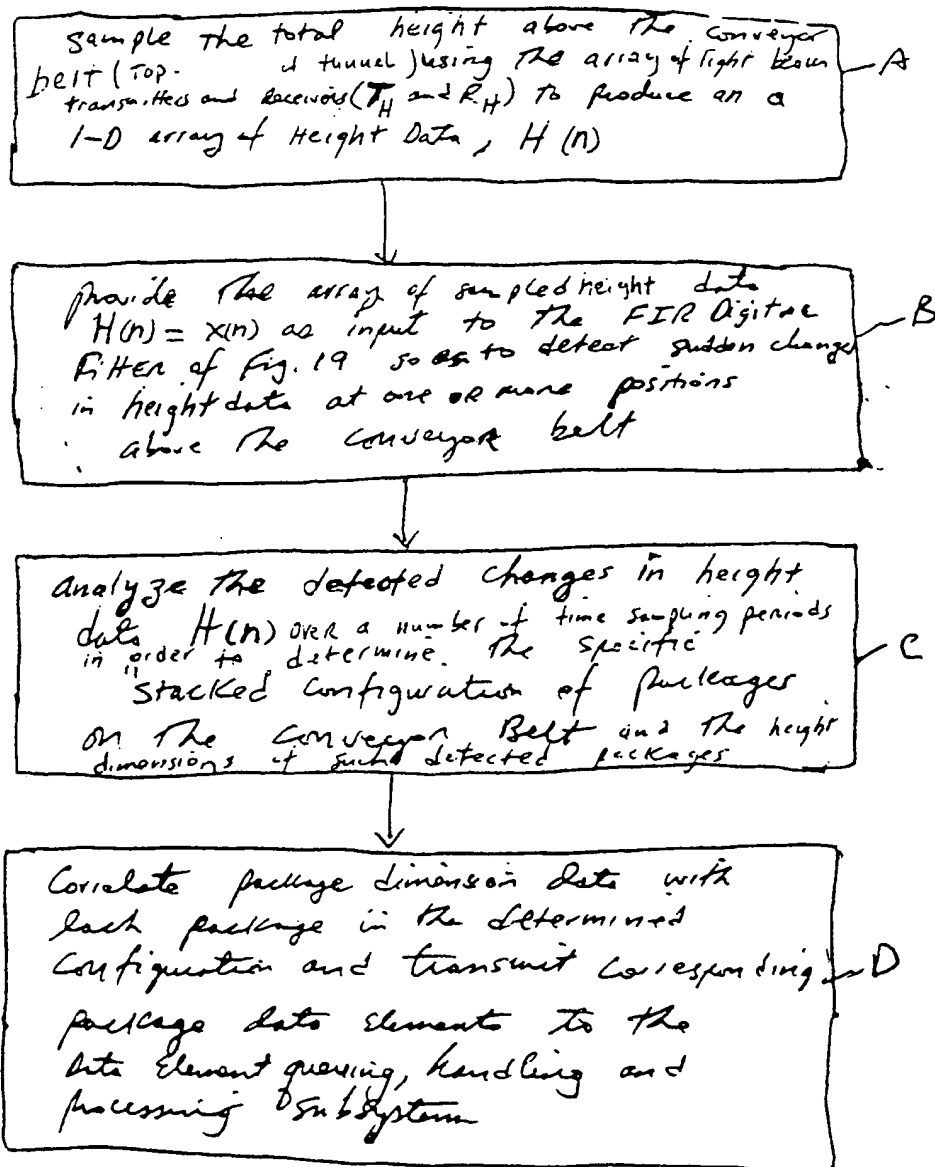 Sample the total height above the conveyor
belt (Top. of tunnel) using the array of light beam
transmitters and Receivers (T_H and R_H) to produce an a
1-D array of Height Data, H(n)
A
provide the array of sampled height data
H(n) = x(n) as input to the FIR Digital
Filter of Fig. 19 so as to detect sudden changes
in height data at one or more positions
above the conveyor belt
B
analyze the detected changes in height
data H(n) over a number of time sampling periods
in order to determine the specific
"stacked configuration of packages
on the conveyor Belt and the height
dimensions of such detected packages
C
Correlate package dimension data with
each package in the determined
configuration and transmit corresponding
D
package data elements to the
Data Element queuing, handling and
processing subsystem